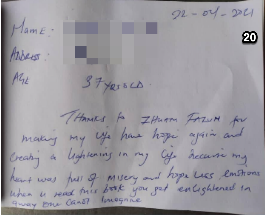 22-04-2021
20
Name:
Address:
Age 37 years old
Thanks to Zhurra Fatum for
making my life have hope again and
creating a lightening in my life because my
heart was full of misery and hopeless emotions
when u read this book you get enlightened in
away one canot imagine